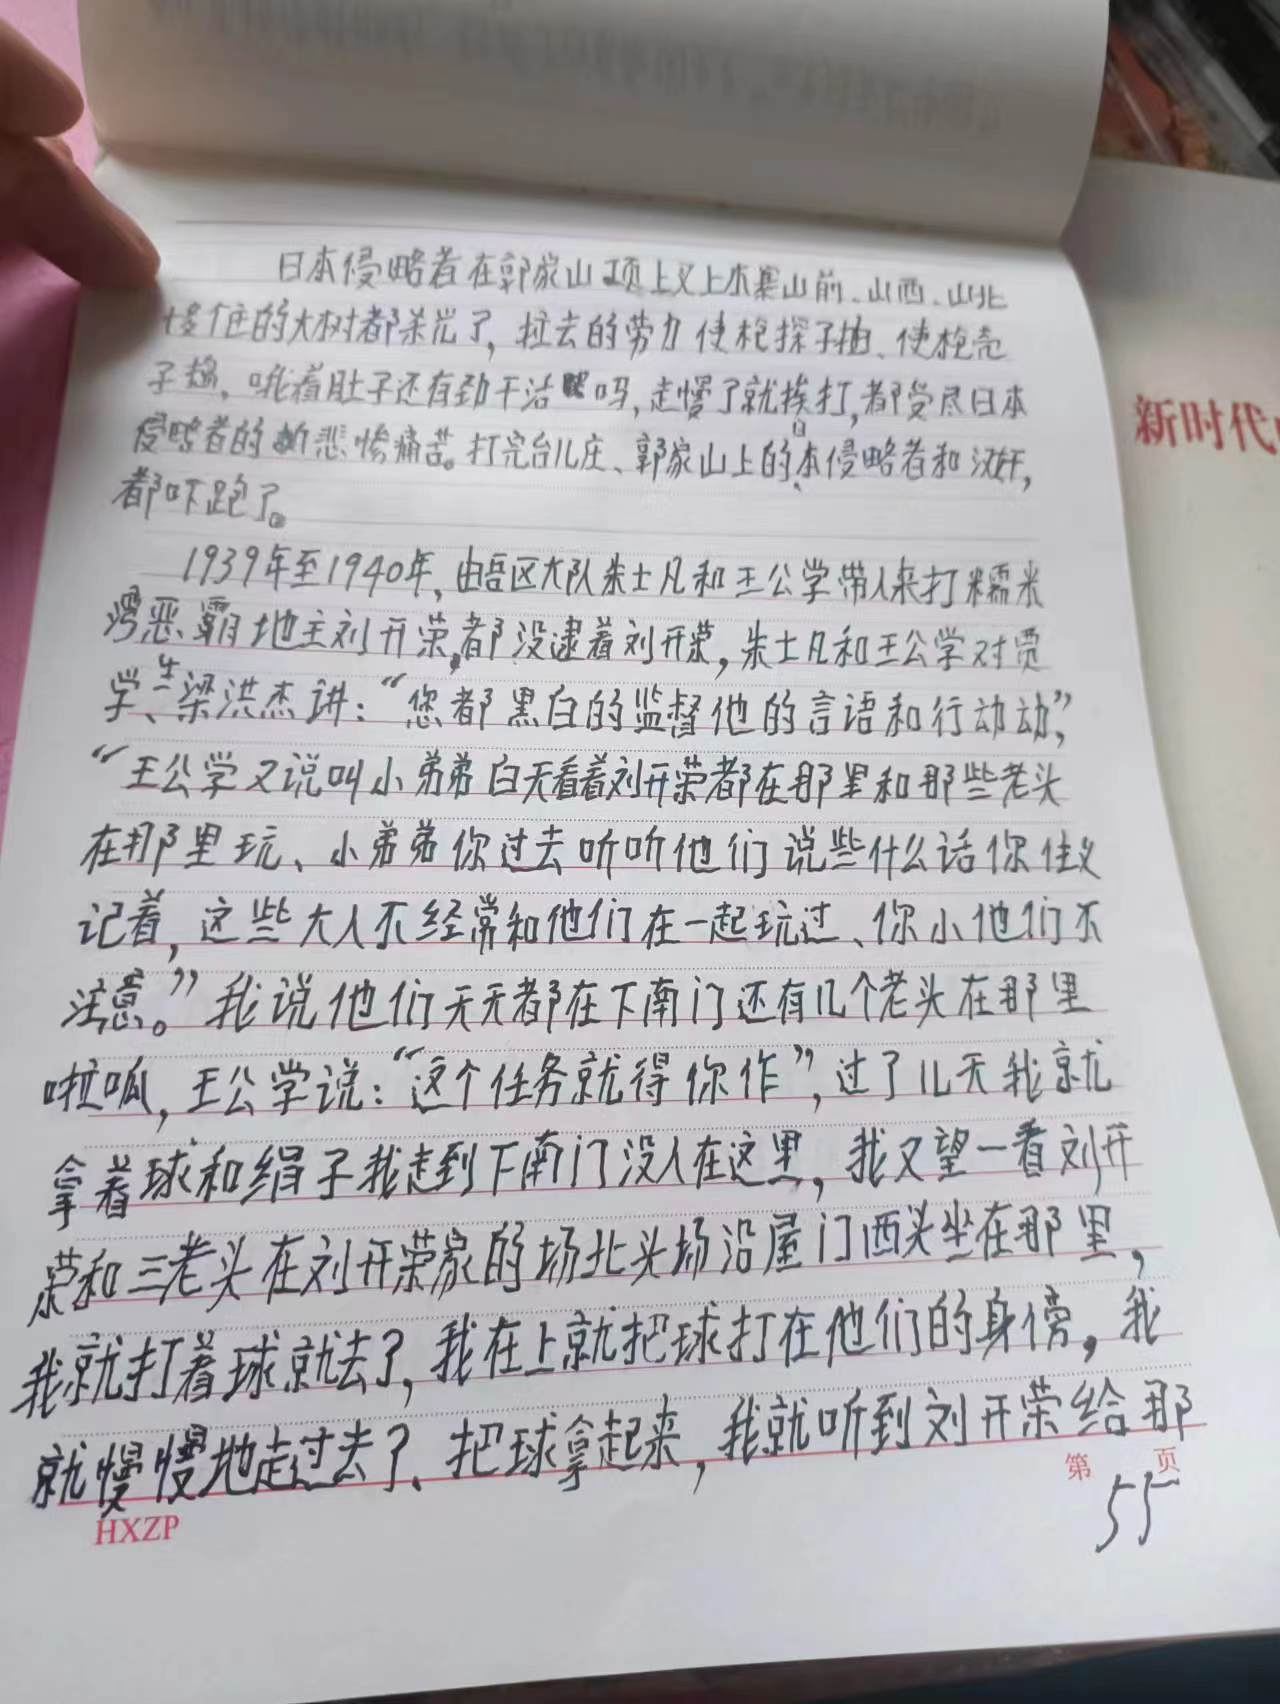 日本侵略者在郭家山顶上又上木寨山前、山西、山北
的大树都杀光了，拉去的劳力使枪探子抽、使枪壳
子捣，哦着肚子还有劲干活吗，走慢了就挨打，都受尽日本
侵略者的悲惨痛苦。打完台儿庄、郭家山上的日本侵略者和汉奸，
都吓跑了。
1939年至1940年，由吾区大队朱士凡和王公学带人来打糯米
湾恶霸地主刘开荣，都没逮着刘开荣，朱士凡和王公学对贾
学、梁洪杰讲：“您都黑白的监督他的言语和行动动，”
“王公学又说叫小弟弟白天看着刘开荣都在那里和那些老头
在那里玩、小弟弟你过去听听他们说些什么话你住义
记着，这些大人不经常和他们在一起玩过、你小他们不
注意。”我说他们天天都在下南门还有几个老头在那里
啦呱，王公学说：“这个任务就得你作”，过了几天我就
拿着球和绢子我走到下南门没人在这里，我又望一看刘开
荣和三老头在刘开荣家的场北头场沿屋门西头坐在那里，
我就打着球就去了，我在上就把球打在他们的身傍，我
就慢慢地走过去了、把球拿起来，我就听到刘开荣给那
第 页
55
HXZP
新时代